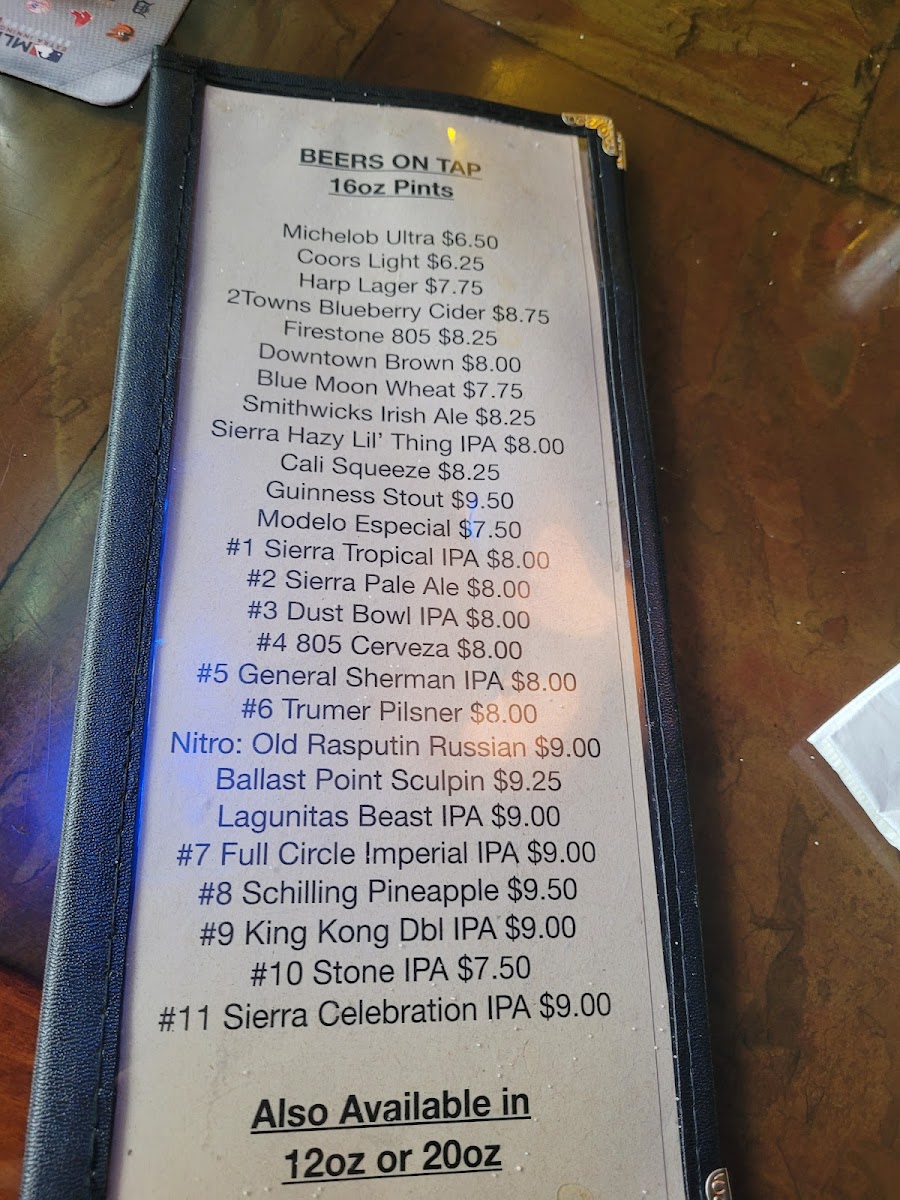 BEERS ON TAP
16oz Pints
Michelob Ultra $6.50
Coors Light $6.25
Harp Lager $7.75
2Towns Blueberry Cider $8.75
Firestone 805 $8.25
Downtown Brown $8.00
Blue Moon Wheat $7.75
Smithwicks Irish Ale $8.25
Sierra Hazy Lil' Thing IPA $8.00
Cali Squeeze $8.25
Guinness Stout $9.50
Modelo Especial $7.50
#1 Sierra Tropical IPA $8.00
#2 Sierra Pale Ale $8.00
#3 Dust Bowl IPA $8.00
#4 805 Cerveza $8.00
#5 General Sherman IPA $8.00
#6 Trumer Pilsner $8.00
Nitro: Old Rasputin Russian $9.00
Ballast Point Sculpin $9.25
Lagunitas Beast IPA $9.00
#7 Full Circle Imperial IPA $9.00
#8 Schilling Pineapple $9.50
#9 King Kong Dbl IPA $9.00
#10 Stone IPA $7.50
#11 Sierra Celebration IPA $9.00
Also Available in
12oz or 20oz